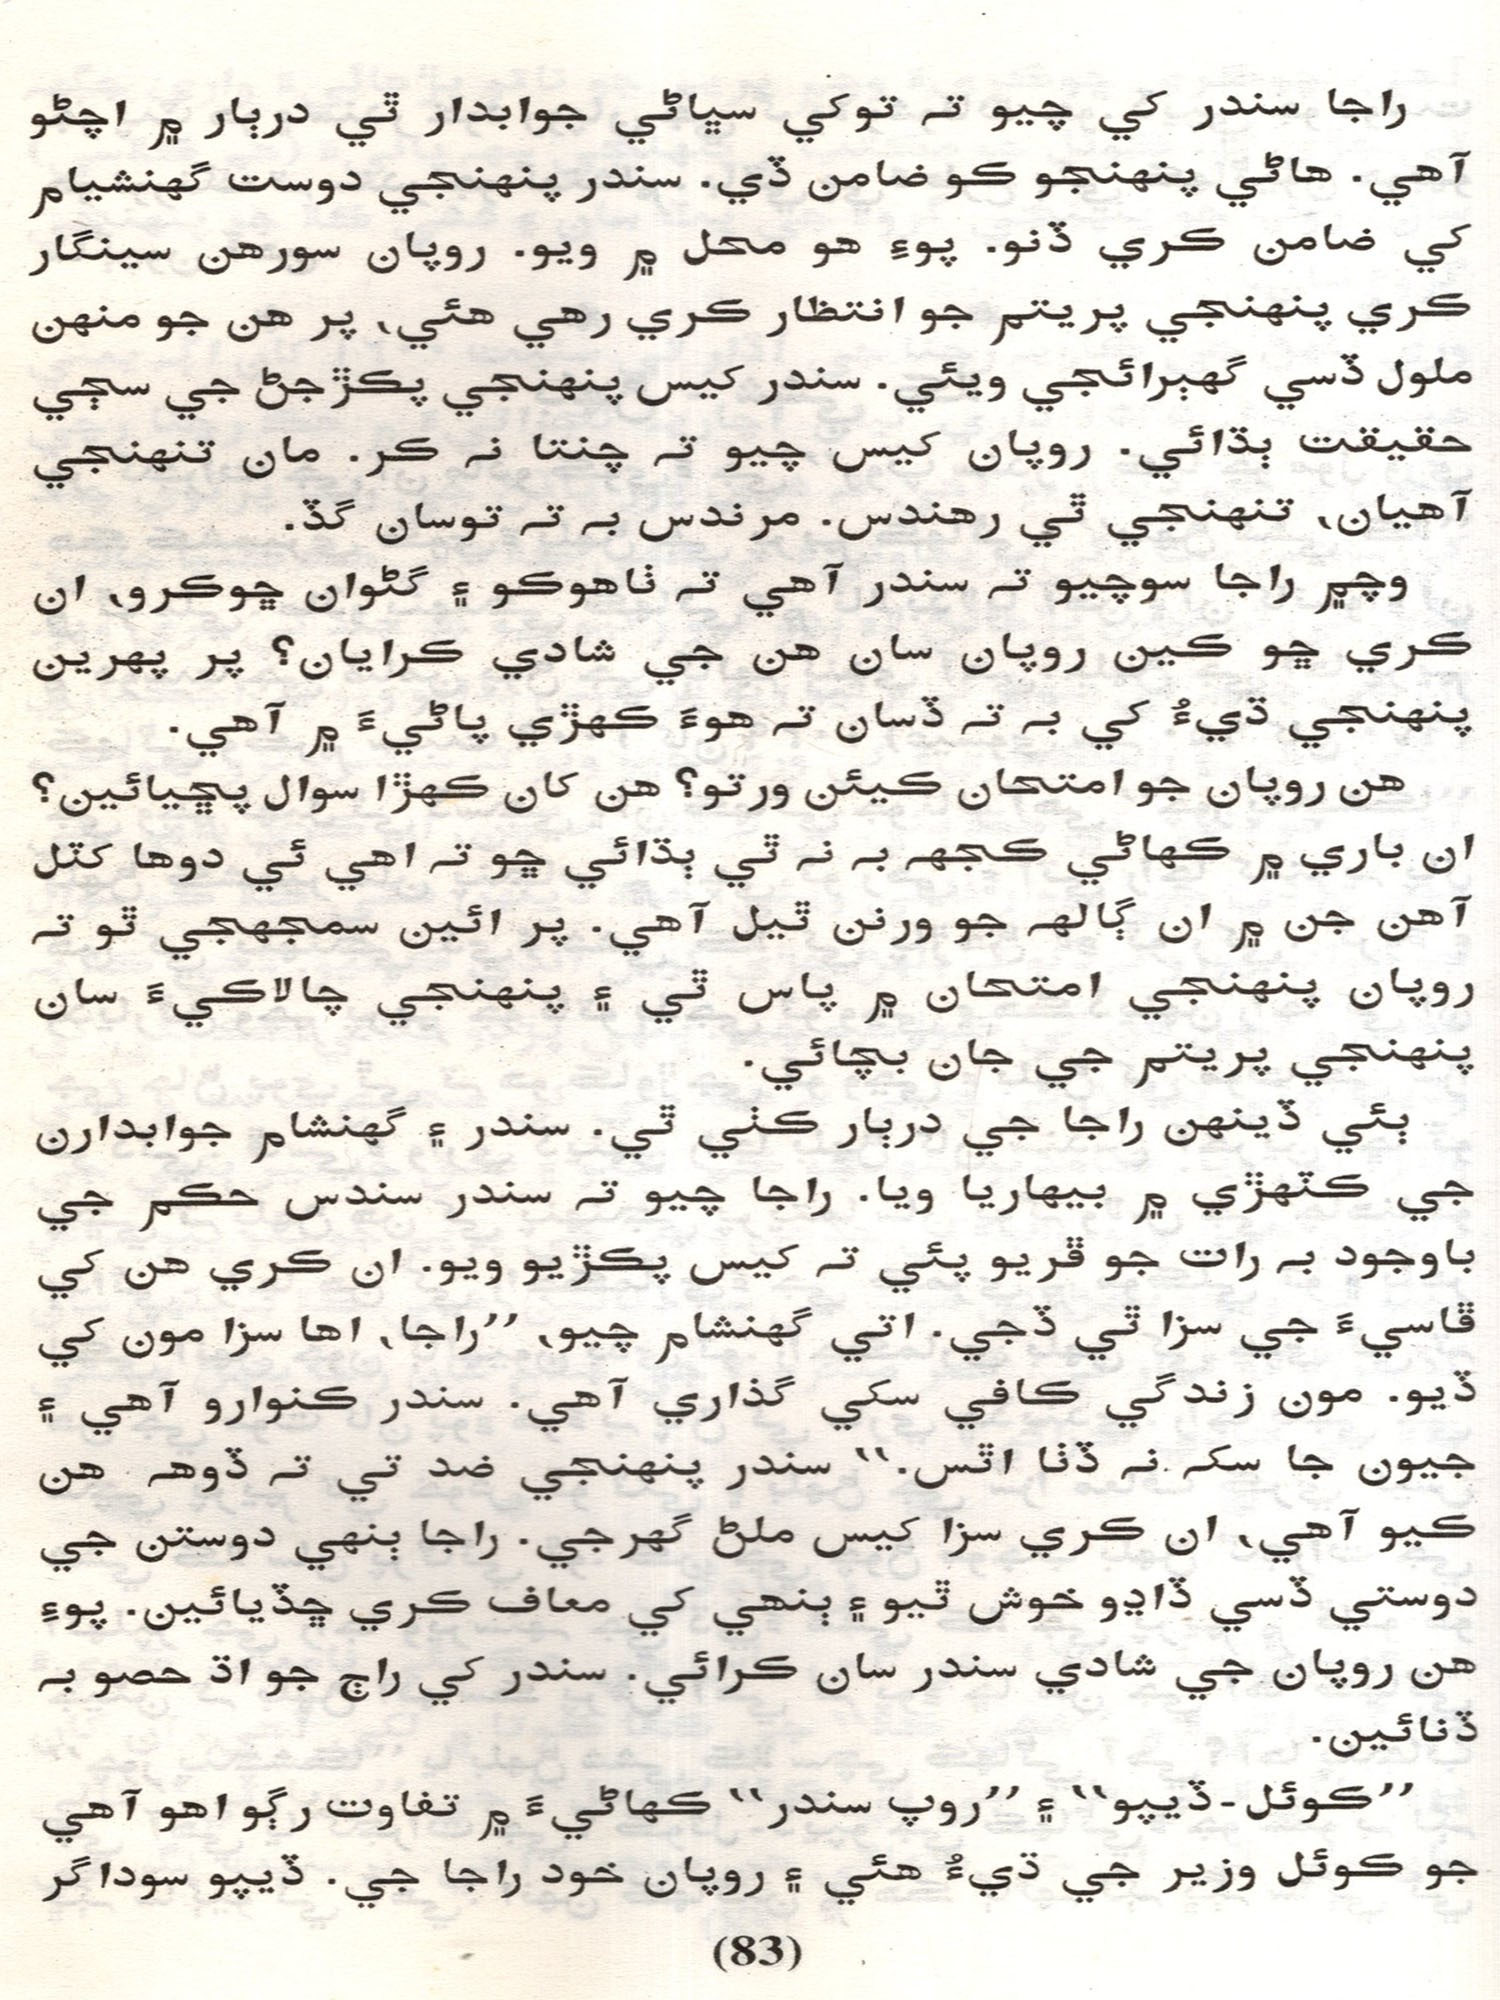 راجا سندر کي چيو تہ توکي سڀاڻي جوابدار ٿي درٻار ۾ اچڻو
آهي. هاڻي پنهنجو ڪو ضامن ڏي. سندر پنهنجي دوست گهنشيام
کي ضامن ڪري ڏنو. پوءِ هو محل ۾ ويو. روپان سورهن سينگار
ڪري پنهنجي پريتم جو انتظار ڪري رهي هئي، پر هن جو منهن
ملول ڏسي گهٻرائجي ويئي. سندر کيس پنهنجي پڪڙجڻ جي سڄي
حقيقت ٻڌائي. روپان کيس چيو تہ چنتا نہ ڪر. مان تنهنجي
آهيان، تنهنجي ٿي رهندس. مرندس بہ تہ توسان گڏ.
وچ۾ راجا سوچيو تہ سندر آهي تہ ٺاهوڪو ۽ گڻوان ڇوڪرو، ان
ڪري ڇو ڪين روپان سان هن جي شادي ڪرايان؟ پر پهرين
پنهنجي ڌيءُ کي بہ تہ ڏسان تہ هوءَ ڪهڙي پاڻيءَ ۾ آهي.
هن روپان جو امتحان ڪيئن ورتو؟ هن کان ڪهڙا سوال پڇيائين؟
ان باري ۾ ڪهاڻي ڪجهہ بہ نہ ٿي ٻڌائي ڇو تہ اهي ئي دوها کٽل
آهن جن ۾ ان ڳالهہ جو ورنن ٿيل آهي. پر ائين سمجهجي ٿو تہ
روپان پنهنجي امتحان ۾ پاس ٿي ۽ پنهنجي چالاڪيءَ سان
پنهنجي پريتم جي جان بچائي.
ٻئي ڏينهن راجا جي درٻار ڪٺي ٿي. سندر ۽ گهنشام جوابدارن
جي ڪٽهڙي ۾ بيهاريا ويا. راجا چيو تہ سندر سندس حڪم جي
باوجود بہ رات جو ڦريو پئي تہ کيس پڪڙيو ويو. ان ڪري هن کي
ڦاسيءَ جي سزا ٿي ڏجي. اتي گهنشام چيو، ’’راجا، اها سزا مون کي
ڏيو. مون زندگي ڪافي سکي گذاري آهي. سندر ڪنوارو آهي ۽
جيون جا سکہ نہ ڏٺا اٿس.‘‘ سندر پنهنجي ضد تي تہ ڏوهہ هن
ڪيو آهي، ان ڪري سزا کيس ملڻ گهرجي. راجا ٻنهي دوستن جي
دوستي ڏسي ڏاڍو خوش ٿيو ۽ ٻنهي کي معاف ڪري ڇڏيائين. پوءِ
هن روپان جي شادي سندر سان ڪرائي. سندر کي راڄ جو اڌ حصو بہ
ڏنائين.
’’ڪوئل-ڏيپو‘‘ ۽ ’’روپ سندر‘‘ ڪهاڻيءَ ۾ تفاوت رڳو اهو آهي
جو ڪوئل وزير جي ڌيءُ هئي ۽ روپان خود راجا جي. ڏيپو سوداگر
(83)